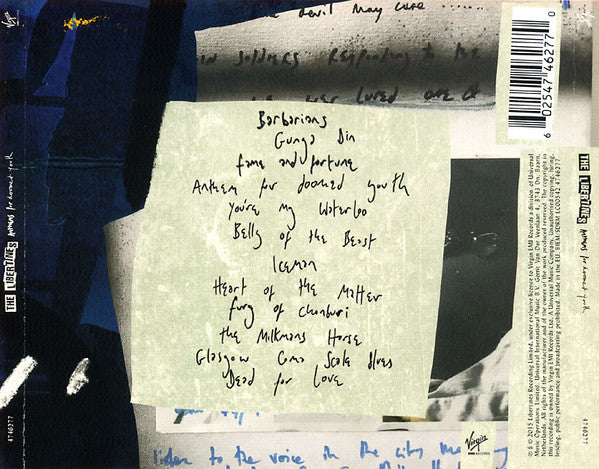 the devil may care ......
soldiers Responding to the
ever loved one
Barbarians
Gunga Din
fame and fortune
Anthem for doomed youth
You're My Waterloo
Belly of the Beast
Iceman
Heart of the Matter
fury of chonburi
the Milkmans Horse
Glasgow Coma Scale Blues
Dead for Love
listen to the voice in the
6 02547 46277 0
THE LIBERTINES
Anthems for doomed youth
4746277
Virgin
EMI RECORDS
THE LIBERTINES
4746277
℗ © 2015 Libertines Recording Limited, under exclusive licence to Virgin EMI Records a division of Universal
Music Operations Limited. Universal International Music B.V. Gerrit Van Der Veenlaan 4, 3743 DN, Baarn,
Netherlands. All rights of the manufacturer and of the owner of the work produced reserved. The copyright in
this recording is owned by Virgin EMI Records Ltd. A Universal Music Company. Unauthorised copying, hiring,
lending, public performance and broadcasting prohibited. Made in the EU. BIEM/SDRM LC00542 4746277